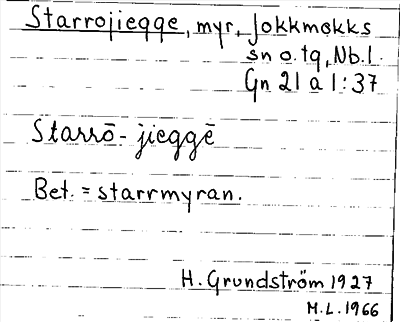 Starrojiegge, myr, Jokkmokks
sn o. tg, Nb.l.
Gn 21 a 1:37
Starrō-jieggē
Bet. = starrmyran.
H. Grundström 1927
M.L. 1966